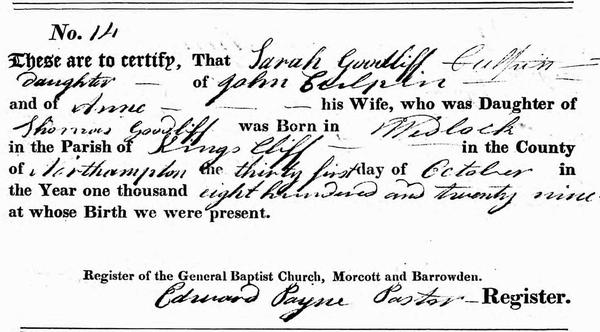 No. 14
These are to certify, That Sarah Goodliff Culpin
daughter — of John Culpin
and of Anne — — — his Wife, who was Daughter of
Thomas Goodliff was Born in — Wedlock
in the Parish of Kings Cliff — in the County
of Northampton the thirty first day of October in
the Year one thousand eight hundred and twenty nine
at whose Birth we were present.
Register of the General Baptist Church, Morcott and Barrowden.
Edward Payne Pastor — Register.